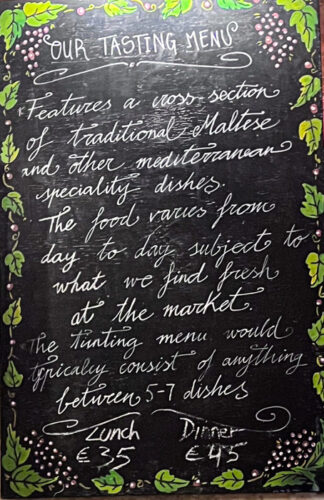 OUR TASTING MENU
Features a cross-section
of traditional Maltese
and other mediterranean
speciality dishes.
The food varies from
day to day subject to
what we find fresh
at the market.
The tasting menu would
typically consist of anything
between 5-7 dishes
Lunch Dinner
€35 €45